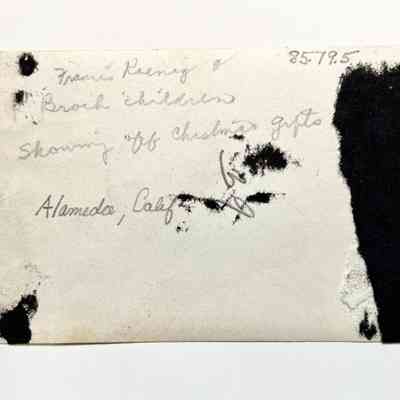 85795
Francis Koenig &
Broch children
Showing off Christmas gifts
Alameda, Calif